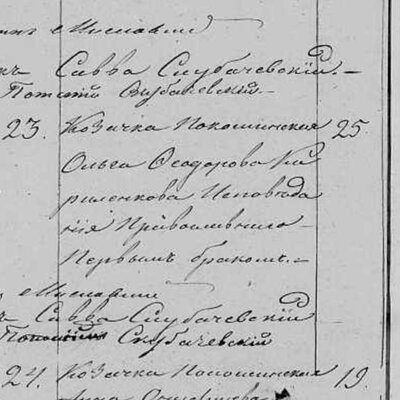 Савва Слубачевскій.
Скубачевскій
23. Козачка Покошинская 25.
Ольга Ѳеодорова Ки
риленкова Исповѣда
нія Православнаго
Первымъ бракомъ.
Савва Слубачевскій
Скубачевскій
24. Козачка Покошинская 19.
Анна